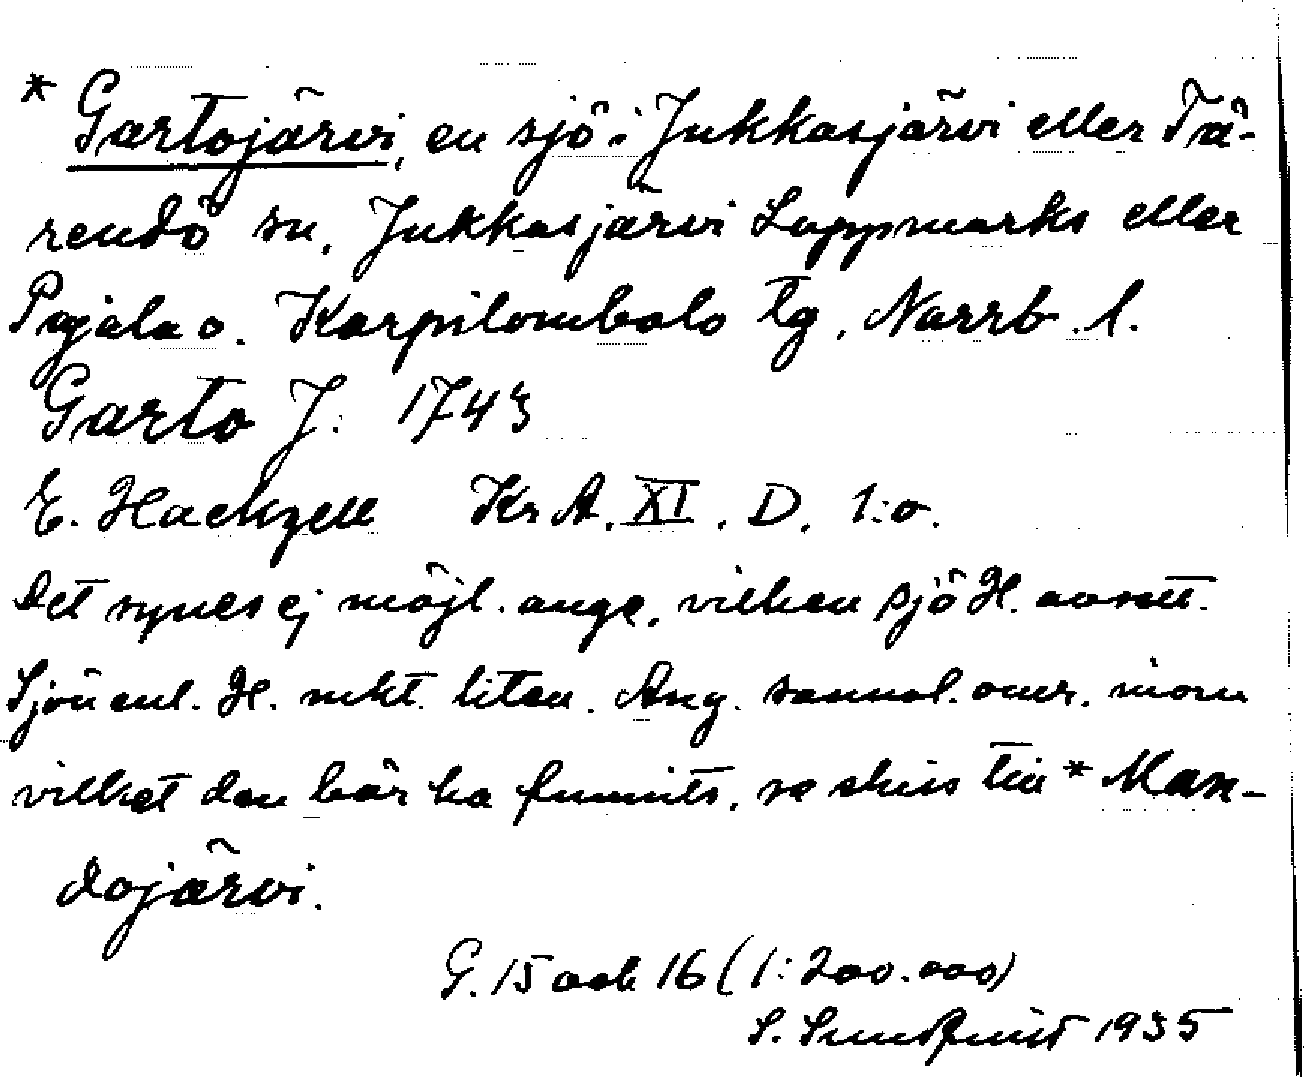 * Gartojärvi, en sjö i Jukkasjärvi eller Tä-
rendö sn, Jukkasjärvi Lappmarks eller
Pajala o. Korpilombolo tg, Norrb. l.
Garto J: 1743
E. Hackzell Kr A. XI. D. 1:o.
Det synes ej möjl. ange, vilken sjö H. avsett.
Sjön enl. H. mkt. liten. Ang. sannol. omr. inom
vilket den bör ha funnits, se skiss till * Man-
dojärvi.
G. 15 och 16 (1:200.000)
S. Sundquist 1935